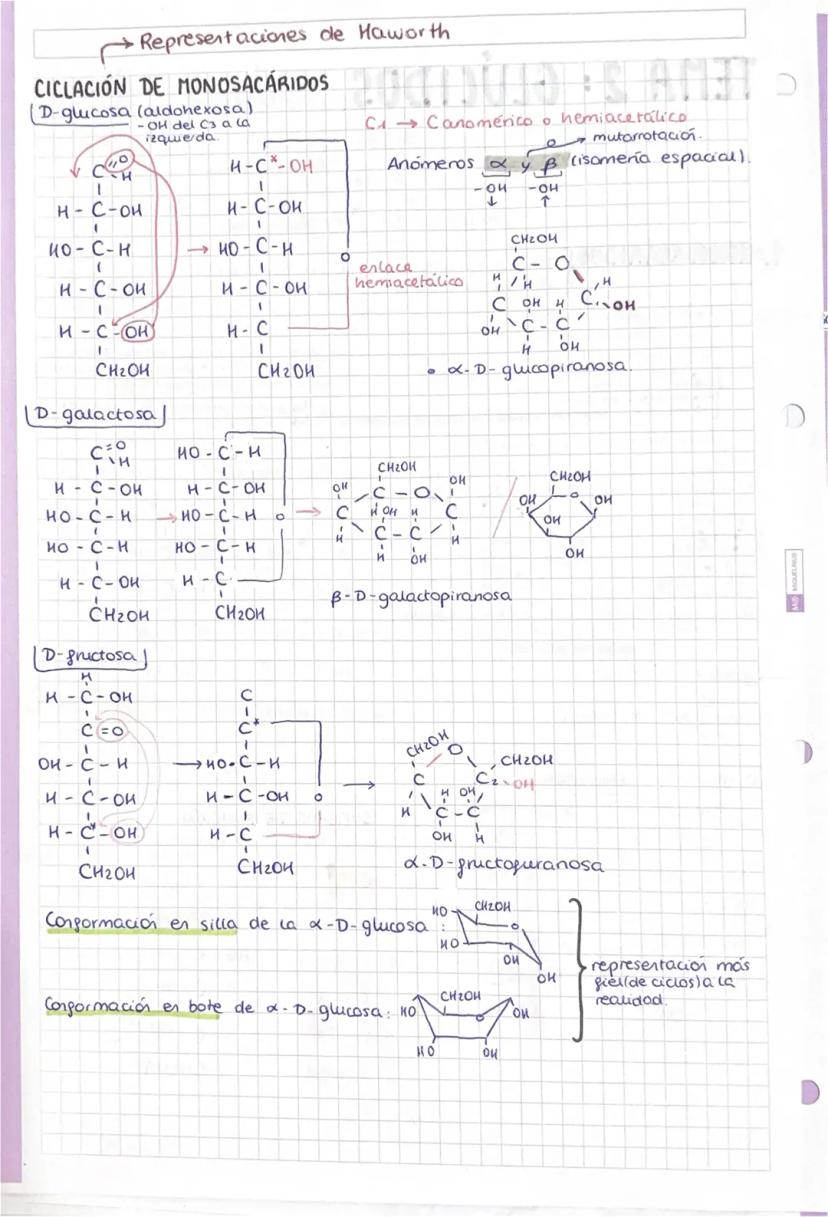 → Representaciones de Haworth
CICLACIÓN DE MONOSACÁRIDOS
D-glucosa (aldohexosa)
- OH del C3 a la
izquierda.
C1 → Canomérico o hemiacetálico
mutarrotación.
Anómeros α y β (isomería espacial).
-OH -OH
↓ ↑
C=O
H
H - C - OH
HO - C - H
H - C - OH
H - C - OH
CH2OH
→
H - C* - OH
H - C - OH
HO - C - H
H - C - OH
H - C
CH2OH
O
enlace
hemiacetálico
CH2OH
C - O
H H H
C OH H C OH
OH C - C
H OH
• α-D-glucopiranosa.
D-galactosa
C=O
H
H - C - OH
HO - C - H
HO - C - H
H - C - OH
CH2OH
→
HO - C - H
H - C - OH
HO - C - H O
HO - C - H
H - C
CH2OH
→
CH2OH
OH C - O OH
C H OH H C
H C - C H
H OH
β-D-galactopiranosa
/
CH2OH
OH O OH
OH
OH
D-fructosa
H
H - C - OH
C = O
OH - C - H
H - C - OH
H - C* - OH
CH2OH
→
C
C*
HO - C - H
H - C - OH O
H - C
CH2OH
→
CH2OH O CH2OH
C C2 - OH
H H OH
C - C
OH H
α-D-fructofuranosa
Conformación en silla de la α-D-glucosa :
HO CH2OH
O
HO
OH
OH
Conformación en bote de α-D-glucosa:
CH2OH
HO O OH
HO OH
representación más
fiel (de ciclos) a la
realidad.
MIQUELRIUS